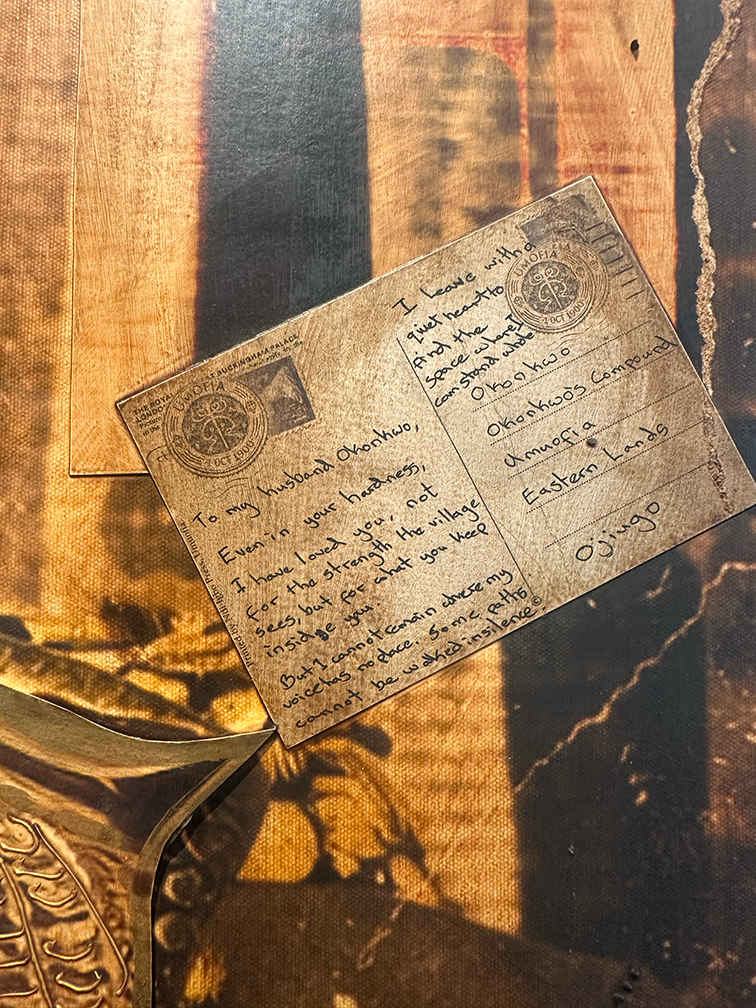 THE ROYAL
LONDON
BUCKINGHAM PALACE,
UMUOFIA
2 OCT 1900
To my husband Okonkwo,
Even in your hardness,
I have loved you, not
for the strength the village
sees, but for what you keep
inside you.
But I cannot remain where my
voice has no place. Some paths
cannot be walked in silence.
I leave with a
quiet heart to
find the
space where I
can stand whole
UMUOFIA
2 OCT 1900
Okonkwo
Okonkwo's Compound
Umuofia
Eastern Lands
Ojiugo
©